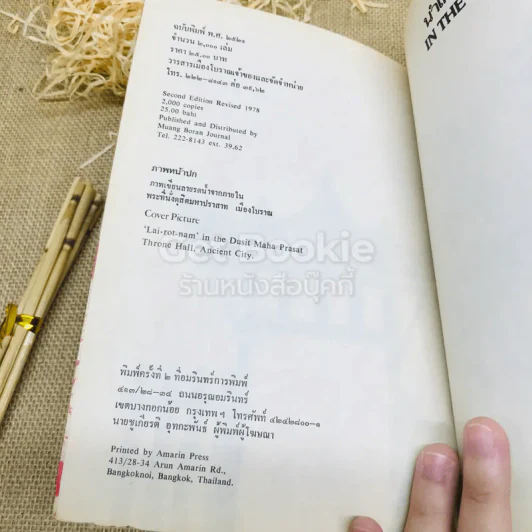 ฉบับพิมพ์ พ.ศ. ๒๕๒๑
จำนวน ๒,๐๐๐ เล่ม
ราคา ๒๕.๐๐ บาท
วารสารเมืองโบราณเจ้าของและจัดจำหน่าย
โทร. ๒๒๒-๘๑๔๓ ต่อ ๓๙,๖๒
Second Edition Revised 1978
2,000 copies
25.00 baht
Published and Distributed by
Muang Boran Journal
Tel. 222-8143 ext. 39,62
ภาพหน้าปก
ภาพเขียนลายรดน้ำจากภายใน
พระที่นั่งดุสิตมหาปราสาท เมืองโบราณ
Cover Picture
'Lai-rot-nam' in the Dusit Maha Prasat
Throne Hall, Ancient City.
Get Bookie
ร้านหนังสือบุ๊คกี้
พิมพ์ครั้งที่ ๒ ที่อมรินทร์การพิมพ์
๔๑๓/๒๘-๓๔ ถนนอรุณอมรินทร์
เขตบางกอกน้อย กรุงเทพฯ โทรศัพท์ ๔๒๔๒๘๐๐-๑
นายชูเกียรติ อุทกะพันธ์ ผู้พิมพ์ผู้โฆษณา
Printed by Amarin Press
413/28-34 Arun Amarin Rd.,
Bangkoknoi, Bangkok, Thailand.
IN THE